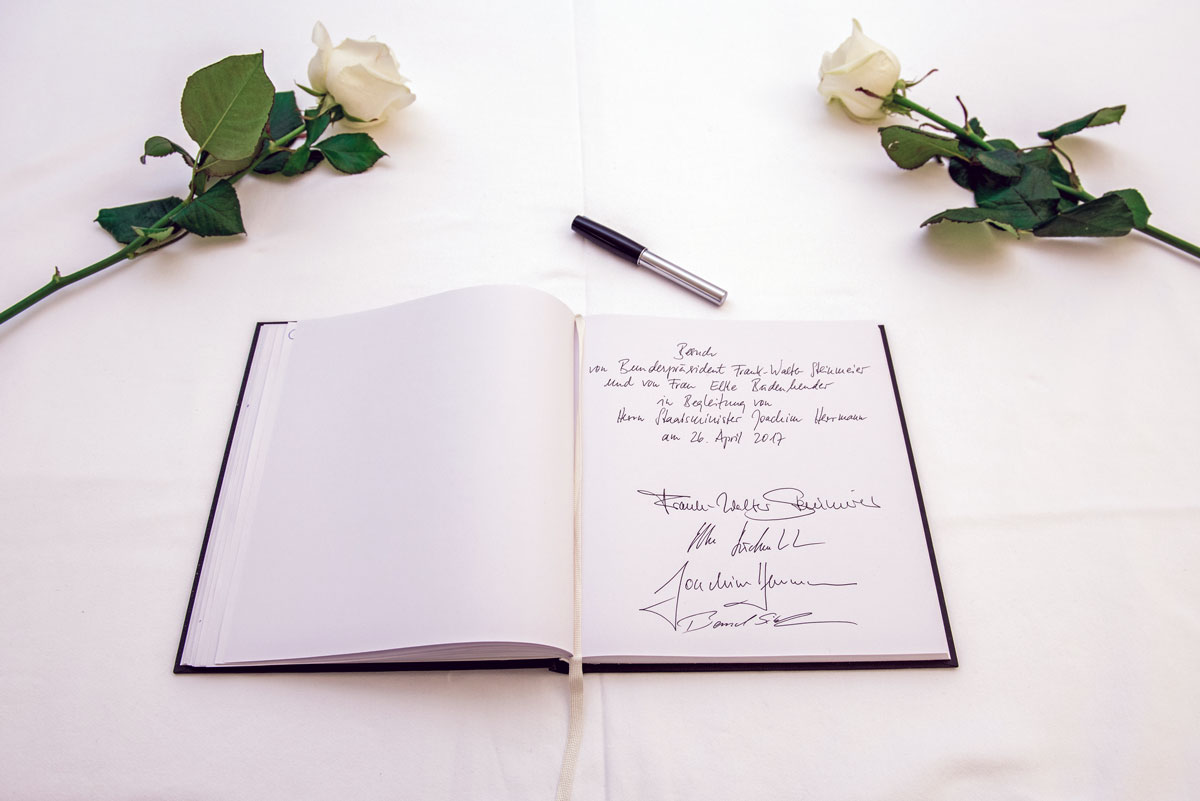 Besuch
von Bundespräsident Frank-Walter Steinmeier
und von Frau Elke Büdenbender
in Begleitung von
Herrn Staatsminister Joachim Herrmann
am 26. April 2017
Frank-Walter Steinmeier
Joachim Herrmann